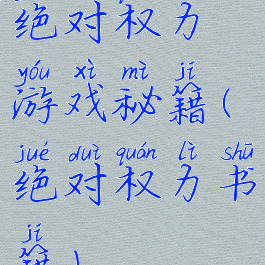 绝对权力
yóu xì mì jí
游戏秘籍(
jué duì quán lì shū
绝对权力书
jí
籍)